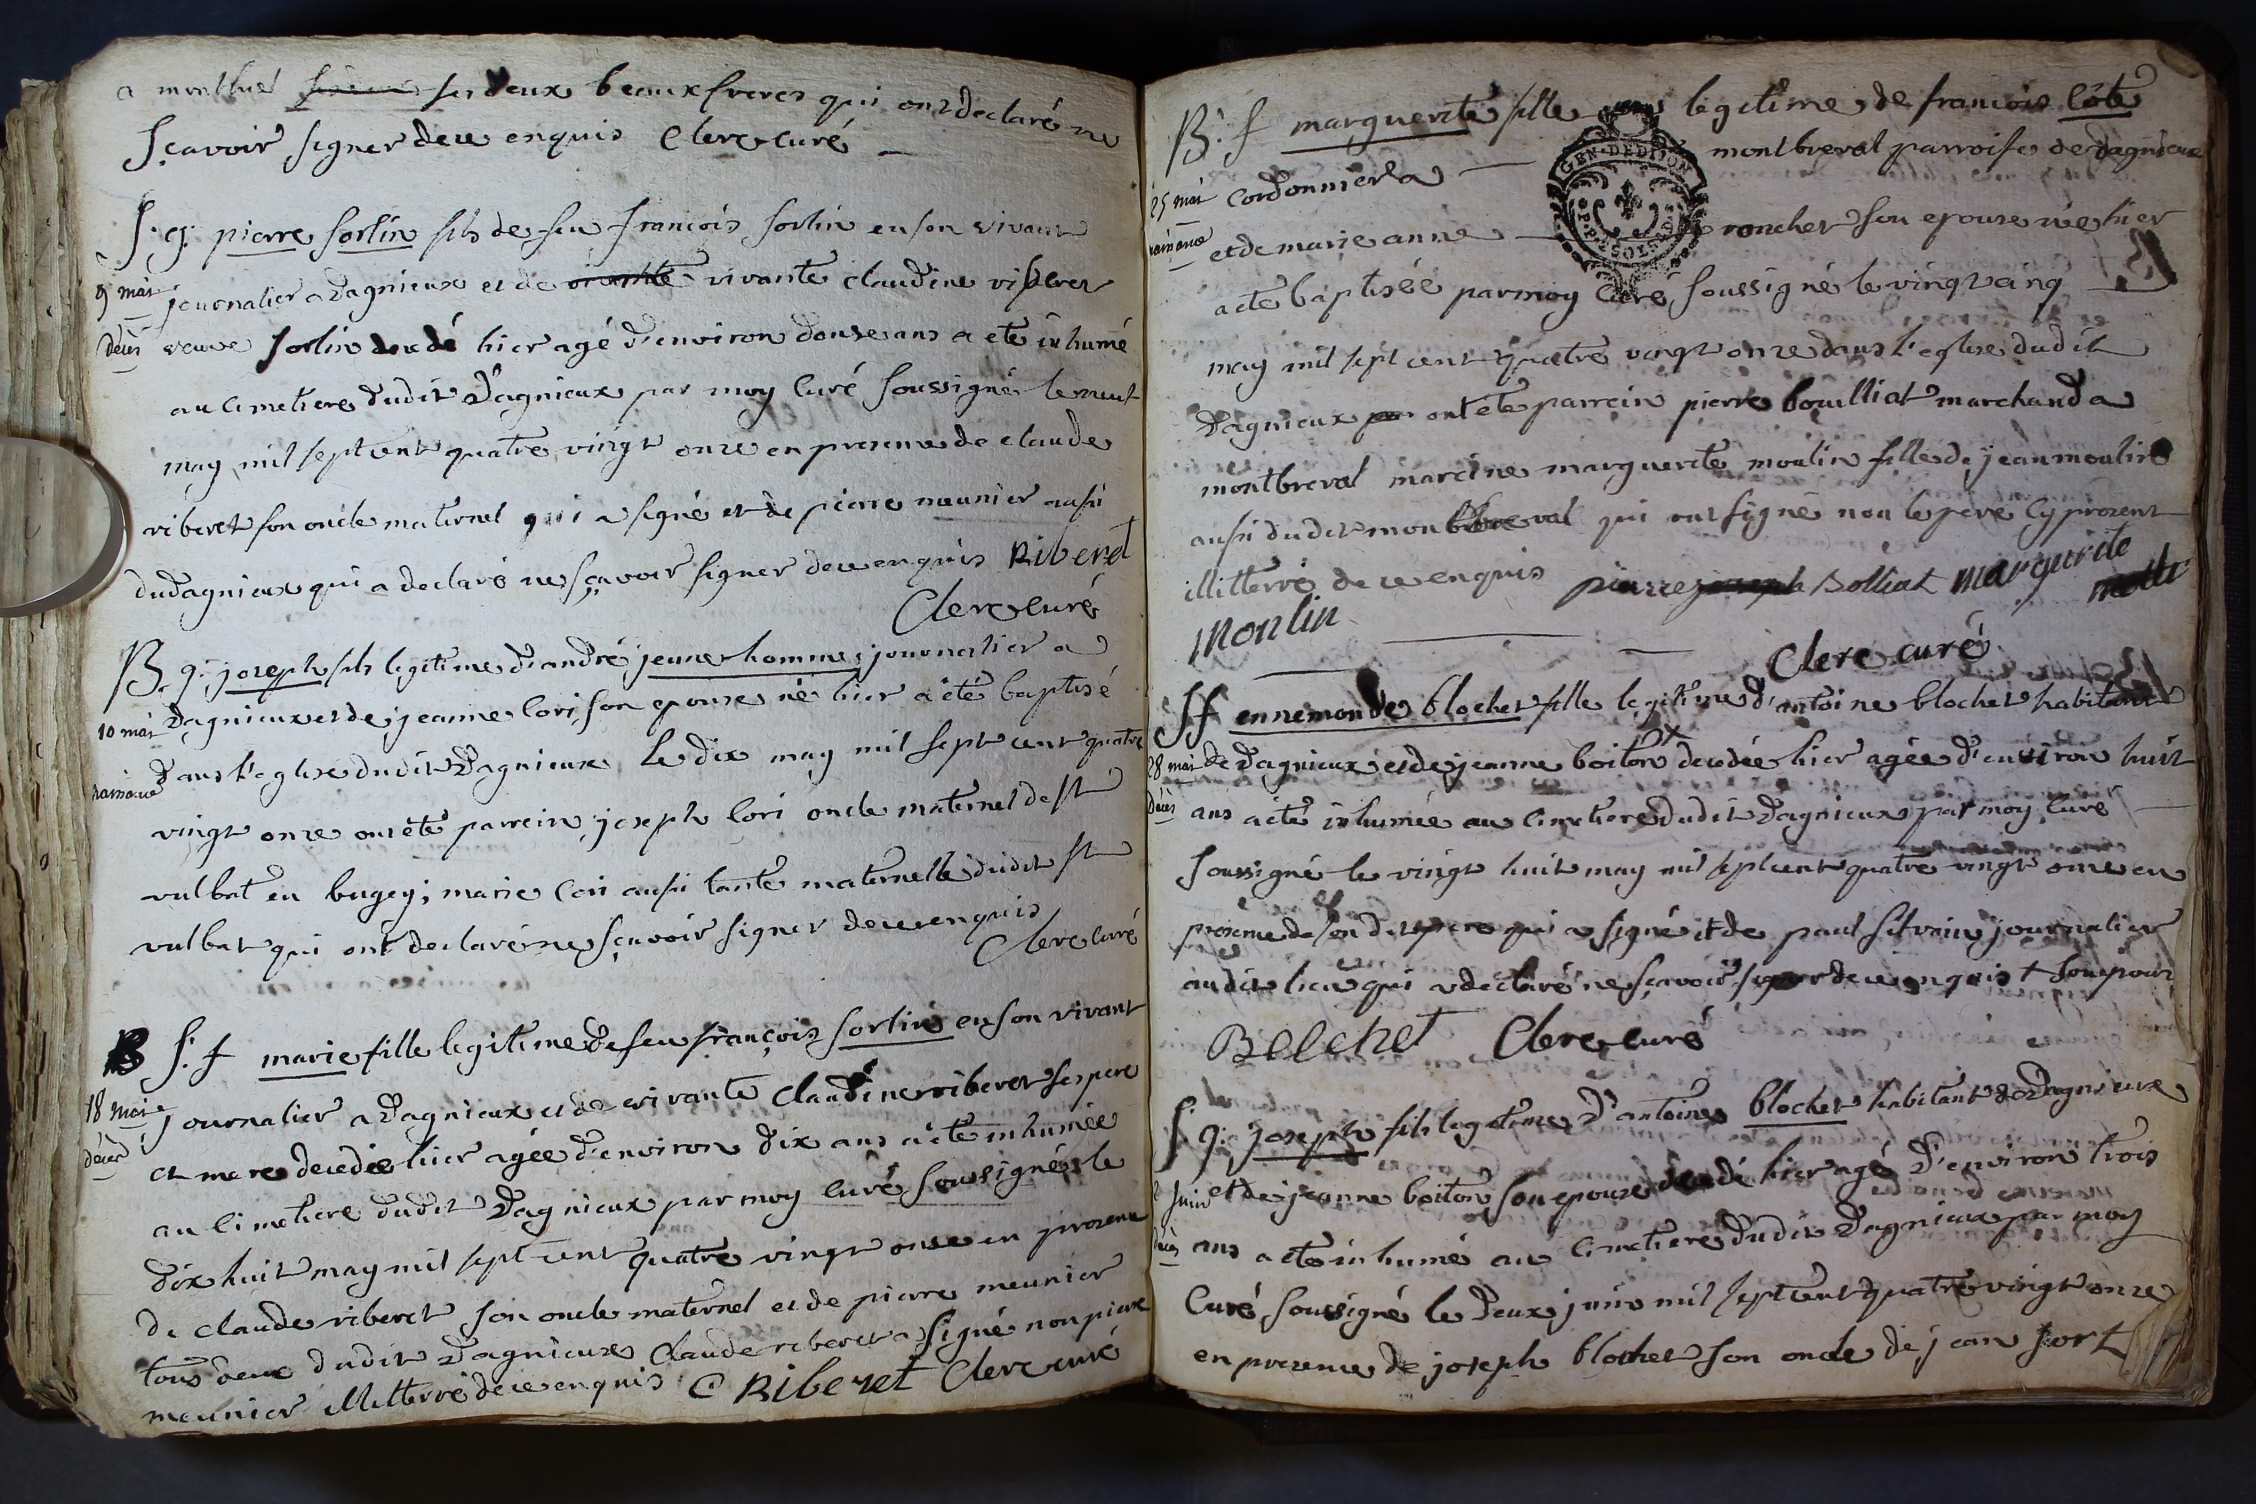 a montluel ses deux beaux freres qui ont declaré ne
sçavoir signer de ce enquis Clerc curé
S. g. pierre sorlin fils de feu francois sorlin en son vivant
9 mai
journalier a Dagnieux et de vivante claudine riberet
décès
veuve sorlin decedé hier agé d'environ douse ans a eté inhumé
au cimetiere dudit Dagnieux par moy curé soussigné le neuf
may mil sept cent quatre vingt onze en presence de claude
riberet son oncle maternel qui a signé et de pierre meunier aussi
du dagnieux qui a declaré ne sçavoir signer de ce enquis Riberet
Clerc curé
B. g. joseph fils legitime d'andré jeune homme journalier a
10 mai
Dagnieux et de jeanne lori son epouse né hier a été baptisé
naissance
dans l'eglise dudit Dagnieux le dix may mil sept cent quatre
vingt onze ont été parrein joseph lori oncle maternel de st
vulbat en bugey; marie lori aussi tante maternelle dudit st
vulbat qui ont declaré ne sçavoir signer de ce enquis
Clerc curé
B S. f marie fille legitime de feu françois sorlin en son vivant
18 mai
journalier a Dagnieux et de vivante claudine riberet ses pere
décès
et mere decedée hier agée d'environ dix ans a été inhumée
au cimetiere dudit Dagnieux par moy curé soussigné le
dix huit may mil sept cent quatre vingt onze en presence
de claude riberet son oncle maternel et de pierre meunier
tous deux dudit Dagnieux claude riberet a signé non pierre
meunier illitterré de ce enquis C Riberet Clerc curé
B. f marguerite fille legitime de francois côte
25 mai
cordonnier a montbreval parroisse de dagnieux
naissance
et de marie anne roncher son epouse née hier
GEN. DE DIJON
a été baptisée par moy curé soussigné le vingt cinq
may mil sept cent quatre vingt onze dans l'eglise dudit
Dagnieux ont été parrein pierre bouilliat marchand a
montbreval mareine marguerite moulin fille de jean moulin
aussi dudit montbreval qui ont signé non le pere cy present
illitterré de ce enquis pierre joseph Bolliat marguerite
monlin
Clerc curé
S f ennemonde blochet fille legitime d'antoine blochet habitant
28 mai
de Dagnieux et de jeanne boiton × decedée hier agée d'environ huit
décès
ans a été inhumée au cimetiere dudit Dagnieux par moy curé
soussigné le vingt huit may mil sept cent quatre vingt onze en
presence de son dit pere qui a signé et de paul silvain journalier
audit lieu qui a declaré ne sçavoir signer de ce enquis + son epouse
Belchet Clerc curé
S. g. joseph fils legitime d'antoine blochet habitant de Dagnieux
2 juin
et de jeanne boiton son epouse decedé hier agé d'environ trois
décès
ans a été inhumé au cimetiere dudit Dagnieux par moy
curé soussigné le deux juin mil sept cent quatre vingt onze
en presence de joseph blochet son oncle de jean fort